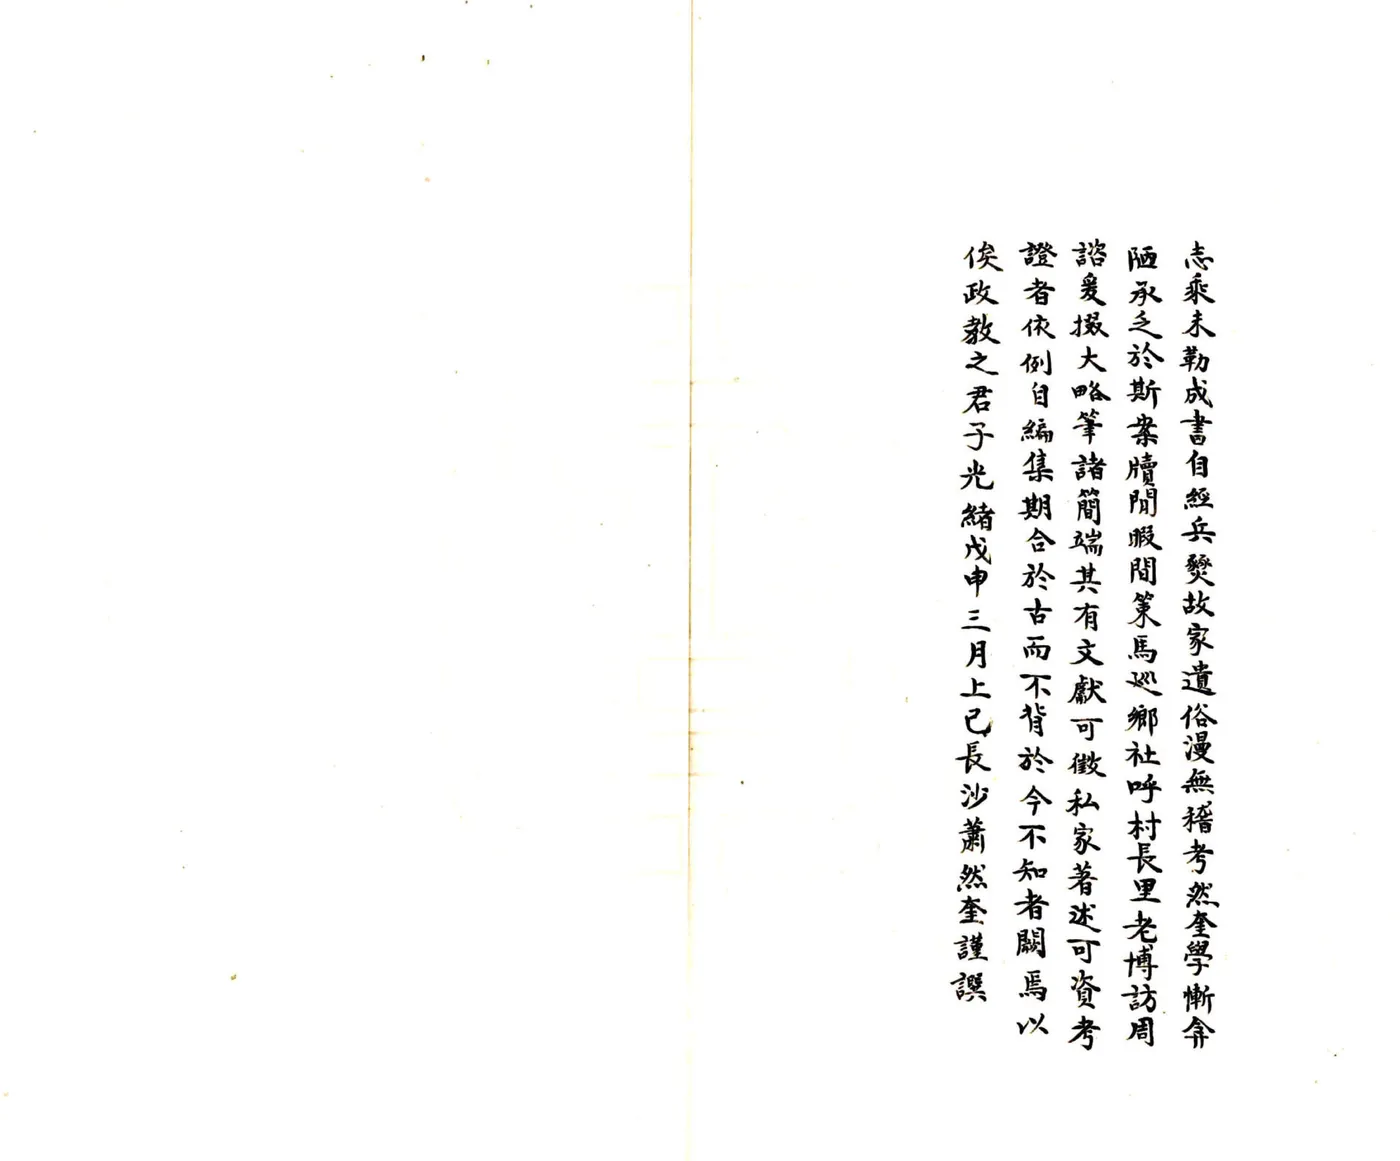 志乘未勒成書自經兵燹故家遺俗漫無稽考然奎學慚弇
陋承乏於斯案牘閒暇間策馬巡鄉社呼村長里老博訪周
諮爰掇大略筆諸簡端其有文獻可徵私家著述可資考
證者依例自編集期合於古而不背於今不知者闕焉以
俟政教之君子光緒戊申三月上巳長沙蕭然奎謹譔